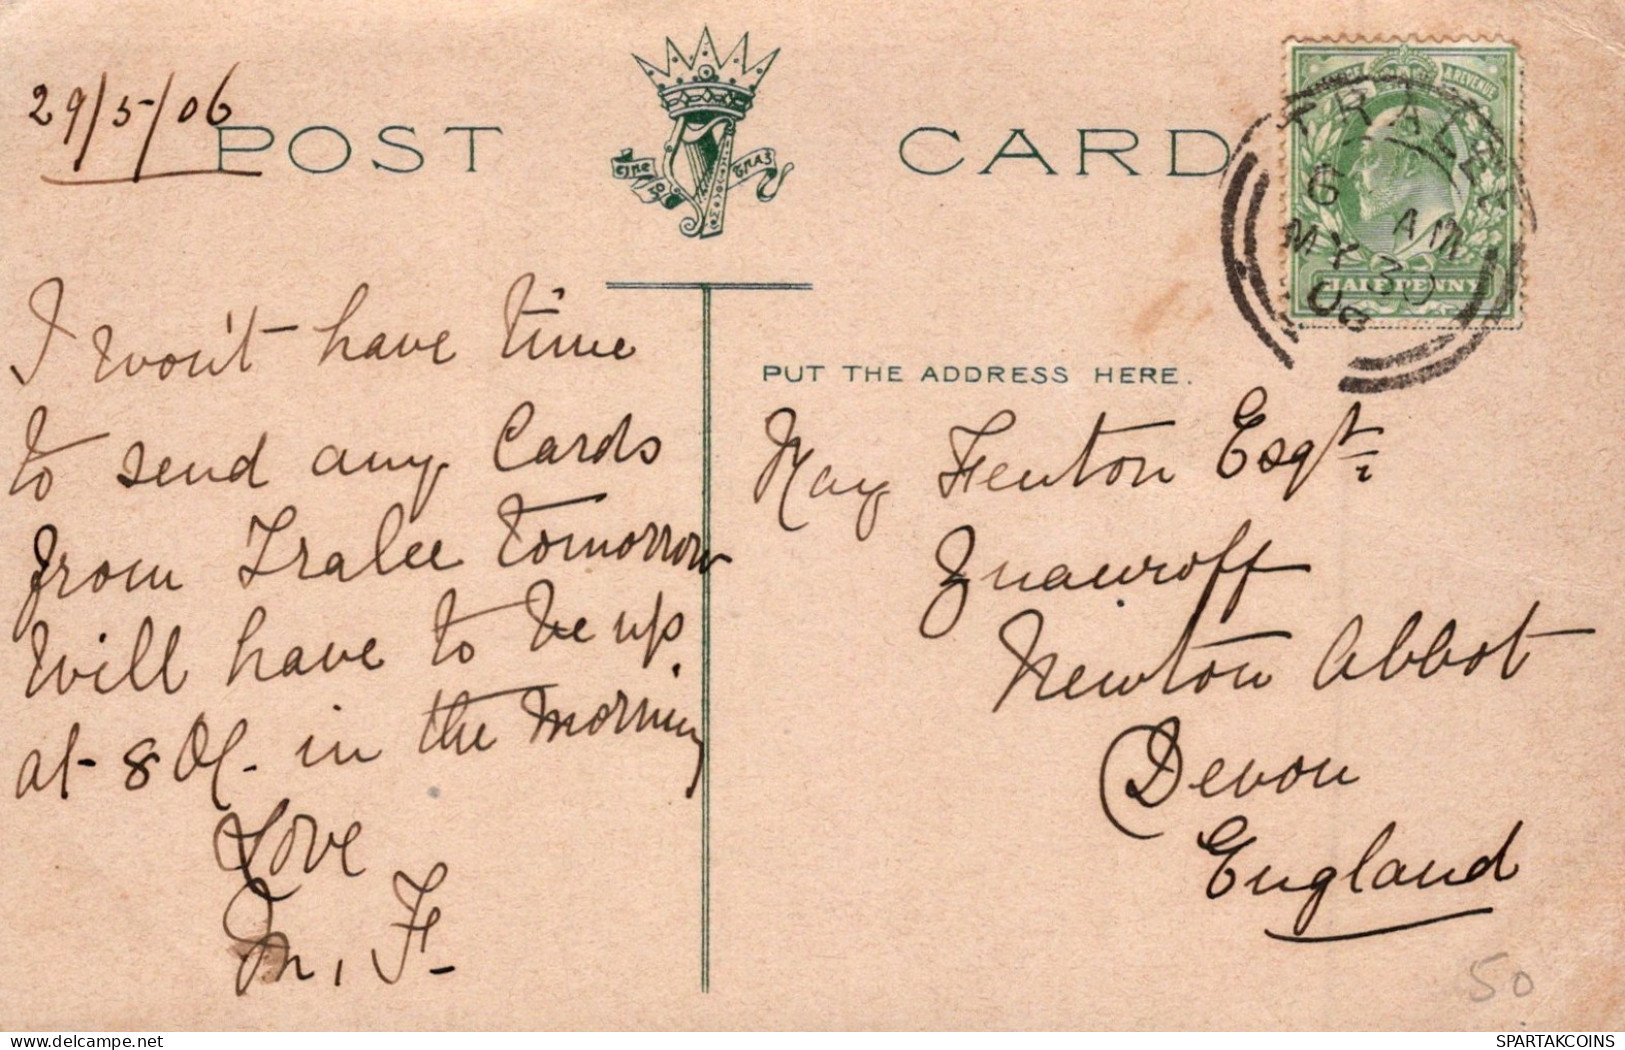 29/5/06
POST CARD
TRALEE
6 AM
MY 30
06
HALF PENNY
I won't have time
to send any Cards
from Tralee tomorrow
Will have to be up
at 8 Ol. in the morning
Love
M. F.
PUT THE ADDRESS HERE.
Ray Fenton Esqr
Newton Abbot
Devon
England
50
SPARTAKCOINS